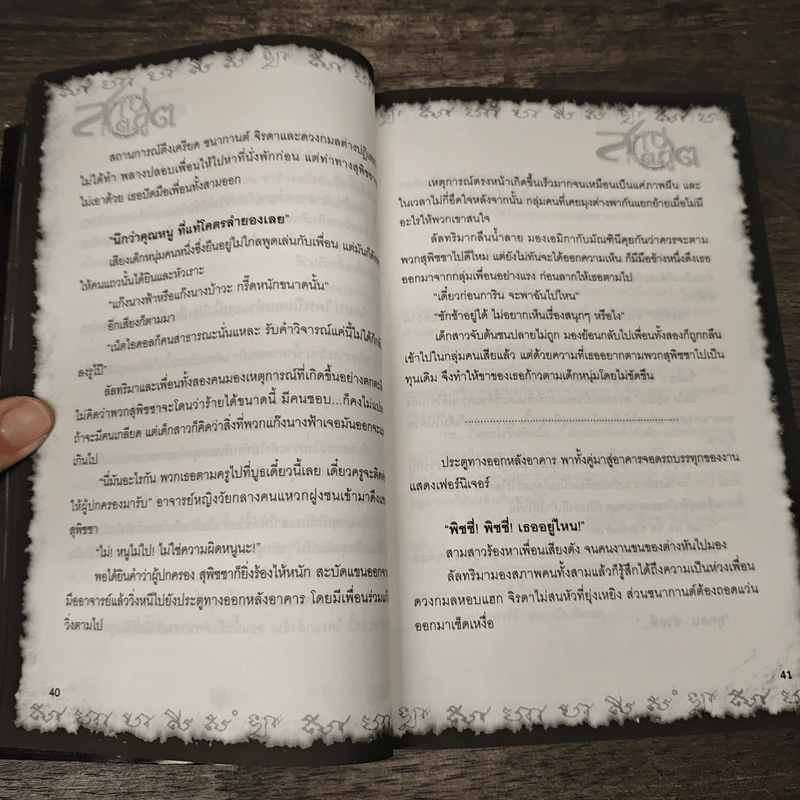 สถานการณ์ตึงเครียด ชนากานต์ จิรดาและดวงกมลต่างปฏิเสธ
ไม่ได้ทำ พลางปลอบเพื่อนให้ไปหาที่นั่งพักก่อน แต่ท่าทางสุพิชชา
ไม่เอาด้วย เธอปัดมือเพื่อนทั้งสามออก
"นึกว่าคุณหนู ที่แท้โคตรลำยองเลย"
เสียงเด็กหนุ่มคนหนึ่งซึ่งยืนอยู่ไม่ไกลพูดเล่นกับเพื่อน แต่มันก็ดัง
ให้คนแถวนั้นได้ยินและหัวเราะ
"แก๊งนางฟ้าหรือแก๊งนางบ้าวะ กรี๊ดหนักขนาดนั้น"
อีกเสียงก็ตามมา
"เน็ตไอดอลก็คนสาธารณะนั่นแหละ รับคำวิจารณ์แค่นี้ไม่ได้ก็
ลงรูปไป"
ลัลทริมาและเพื่อนทั้งสองคนมองเหตุการณ์ที่เกิดขึ้นอย่างตกตะลึง
ไม่คิดว่าพวกสุพิชชาจะโดนว่าร้ายได้ขนาดนี้ มีคนชอบ...ก็คงไม่แปลก
ถ้าจะมีคนเกลียด แต่เด็กสาวก็คิดว่าสิ่งที่พวกแก๊งนางฟ้าเจอมันออกจะ
เกินไป
"นี่มันอะไรกัน พวกเธอตามครูไปที่บูธเดี๋ยวนี้เลย เดี๋ยวครูจะติดต่อ
ให้ผู้ปกครองมารับ" อาจารย์หญิงวัยกลางคนแหวกฝูงชนเข้ามาดึงแขน
สุพิชชา
"ไม่! หนูไม่ไป! ไม่ใช่ความผิดหนูนะ!"
พอได้ยินคำว่าผู้ปกครอง สุพิชชาก็ยิ่งร้องไห้หนัก สะบัดแขนออกจาก
มืออาจารย์แล้ววิ่งหนีไปยังประตูทางออกหลังอาคาร โดยมีเพื่อนร่วมแก๊ง
วิ่งตามไป
40
เหตุการณ์ตรงหน้าเกิดขึ้นเร็วมากจนเหมือนเป็นแค่ภาพฝัน และ
ในเวลาไม่กี่อึดใจหลังจากนั้น กลุ่มคนที่เคยมุงต่างพากันแยกย้ายเมื่อไม่มี
อะไรให้พวกเขาสนใจ
ลัลทริมากลืนน้ำลาย มองเอมิกากับมัณฑินีคุยกันว่าควรจะตาม
พวกสุพิชชาไปดีไหม แต่ยังไม่ทันจะได้ออกความเห็น ก็มีมือข้างหนึ่งดึงเธอ
ออกมาจากกลุ่มเพื่อนอย่างแรง ก่อนลากให้เธอตามไป
"เดี๋ยวก่อนการิน จะพาฉันไปไหน"
"ชักช้าอยู่ได้ ไม่อยากเห็นเรื่องสนุกๆ หรือไง"
เด็กสาวจับต้นชนปลายไม่ถูก มองย้อนกลับไปเพื่อนทั้งสองก็ถูกกลืน
เข้าไปในกลุ่มคนเสียแล้ว แต่ด้วยความที่เธออยากตามพวกสุพิชชาไปเป็น
ทุนเดิม จึงทำให้ขาของเธอก้าวตามเด็กหนุ่มโดยไม่ขัดขืน
......................................................................
ประตูทางออกหลังอาคาร พาทั้งคู่มาสู่อาคารจอดรถบรรทุกของงาน
แสดงเฟอร์นิเจอร์
"พิชชี่! พิชชี่! เธออยู่ไหน!"
สามสาวร้องหาเพื่อนเสียงดัง จนคนงานขนของต่างหันไปมอง
ลัลทริมามองสภาพคนทั้งสามแล้วก็รู้สึกได้ถึงความเป็นห่วงเพื่อน
ดวงกมลหอบแฮก จิรดาไม่สนหัวที่ยุ่งเหยิง ส่วนชนากานต์ต้องถอดแว่น
ออกมาเช็ดเหงื่อ
41